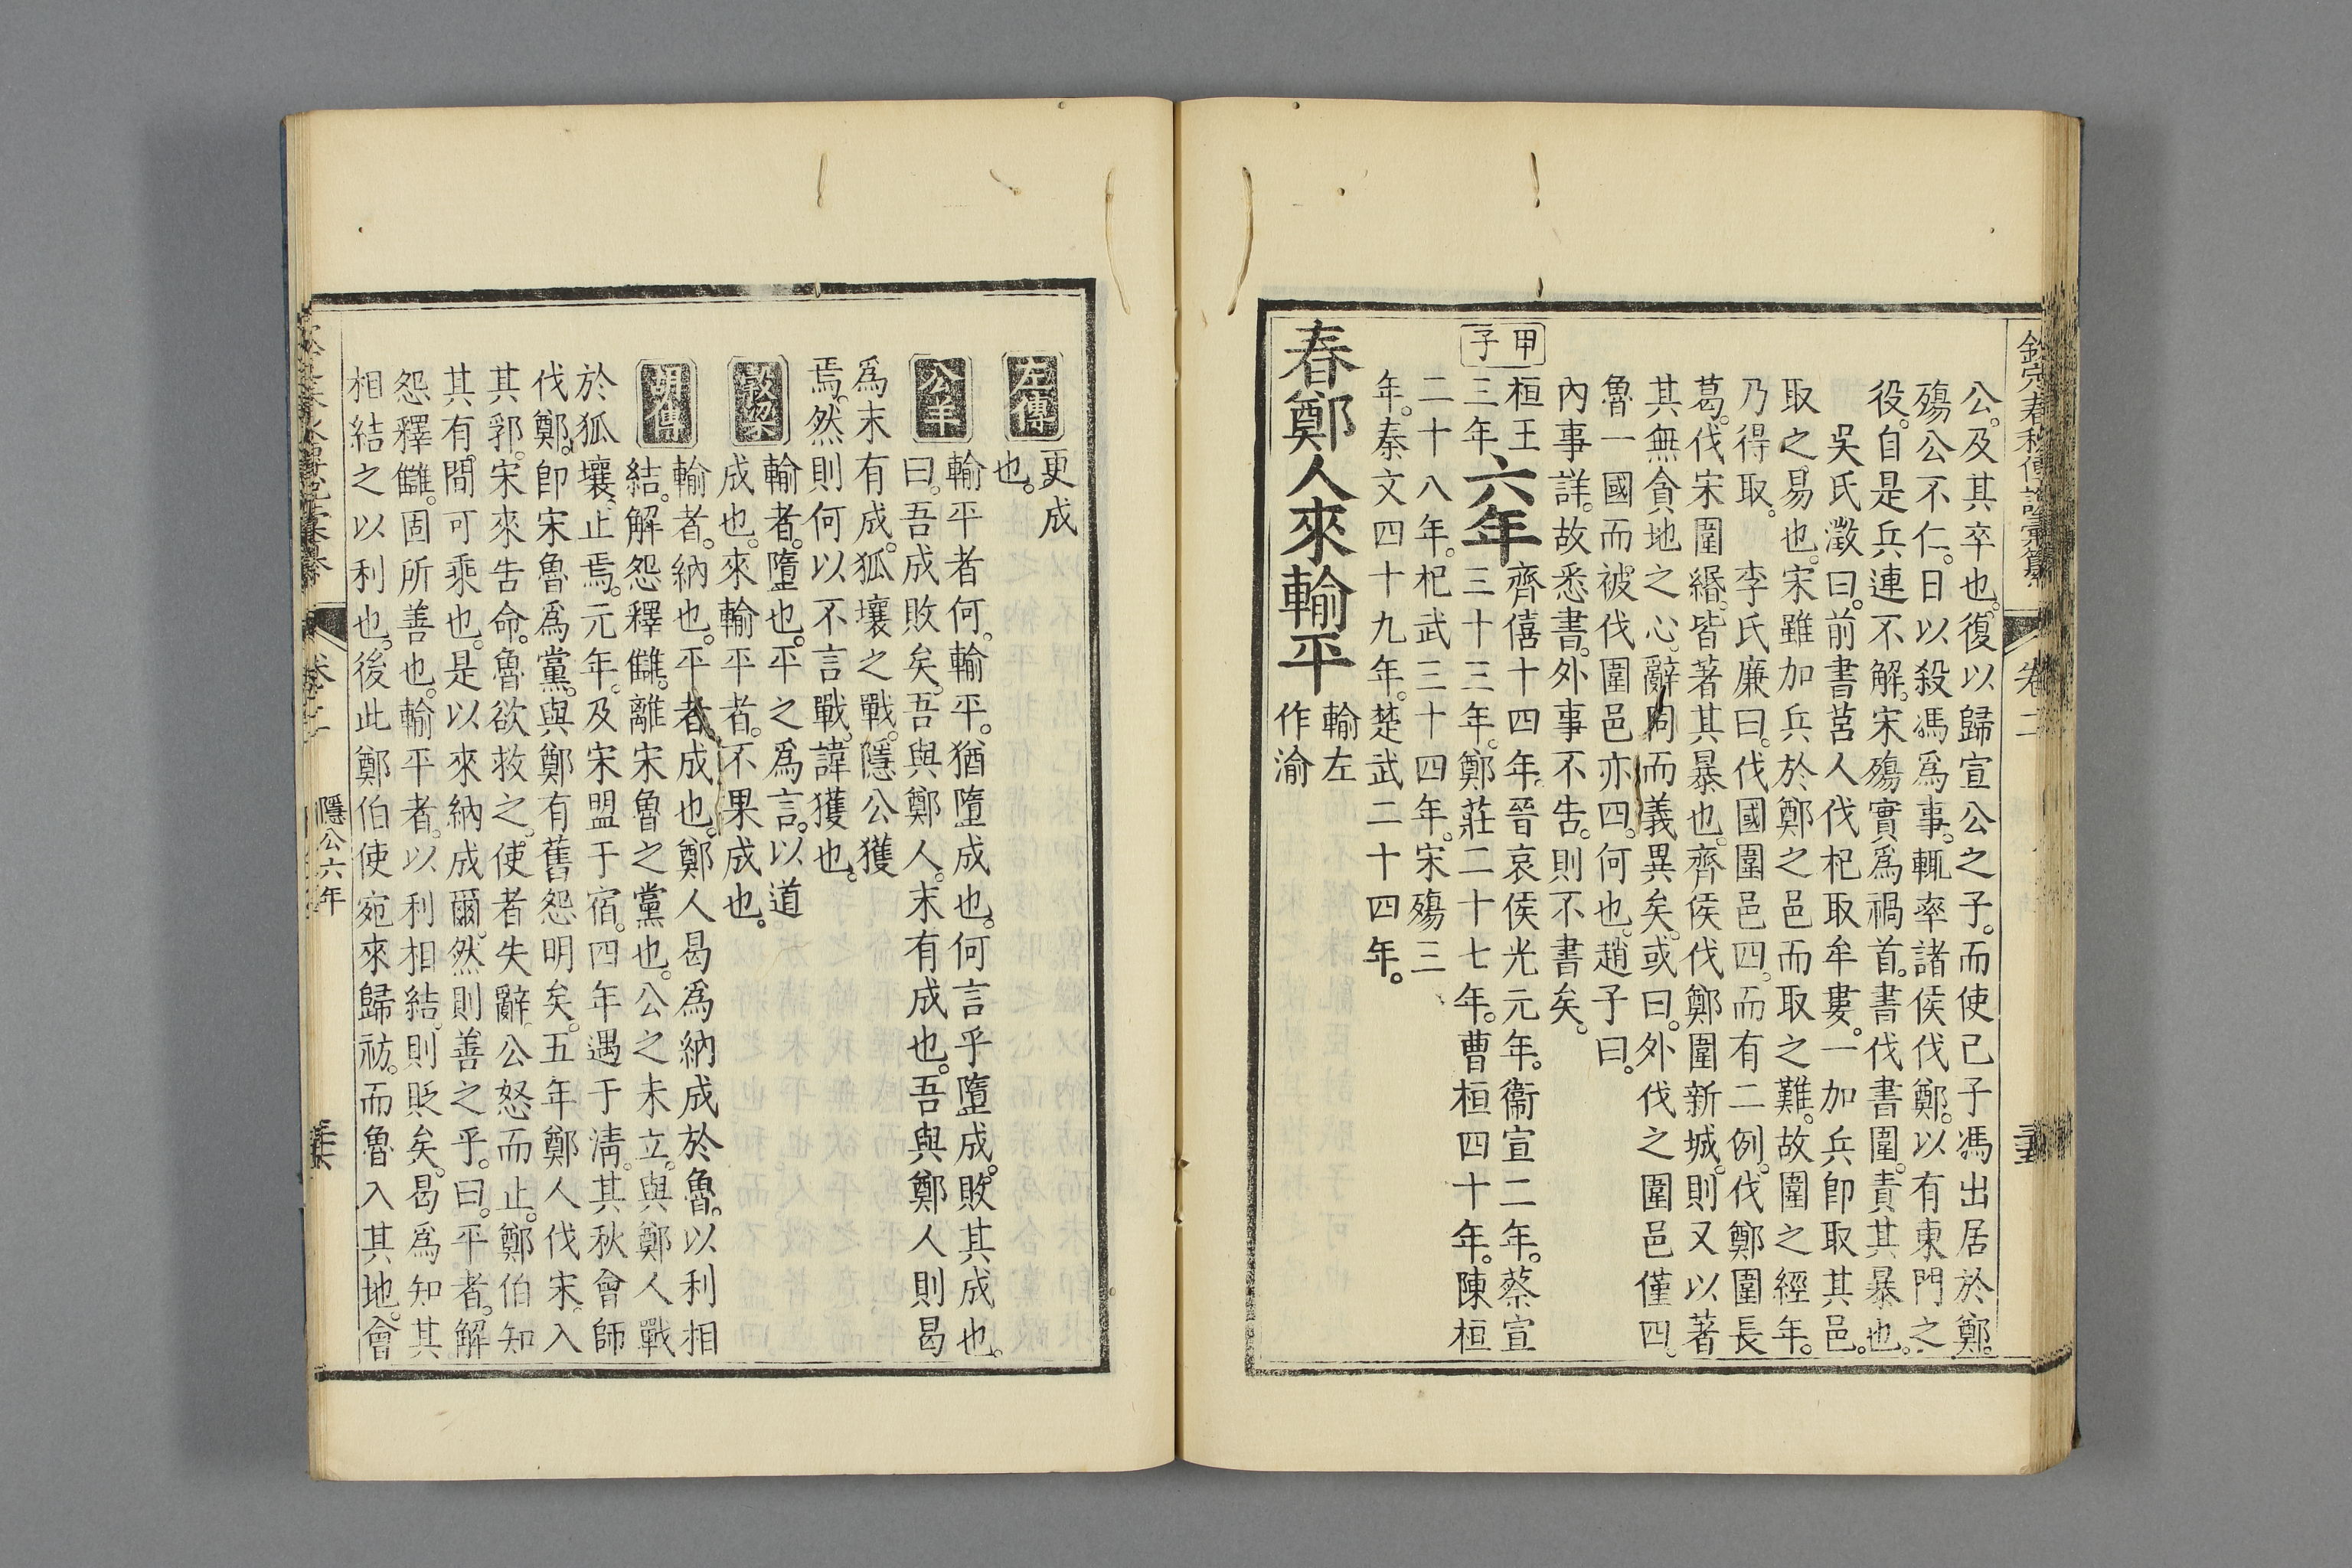 欽定春秋傳說彙纂 卷二
公。及其卒也。復以歸宣公之子。而使己子馮出居於鄭。
殤公不仁。日以殺馮爲事。輒率諸侯伐鄭。以有東門之
役。自是兵連不解。宋殤實爲禍首。書伐書圍。責其暴也。
吳氏澂曰。前書莒人伐杞取牟婁。一加兵卽取其邑。
取之易也。宋雖加兵於鄭之邑而取之難。故圍之經年。
乃得取。 李氏廉曰。伐國圍邑四。而有二例。伐鄭圍長
葛。伐宋圍緡。皆著其暴也。齊侯伐鄭圍新城。則又以著
其無貪地之心。辭同而義異矣。或曰。外伐之圍邑僅四。
魯一國而被伐圍邑亦四。何也。趙子曰。
內事詳。故悉書。外事不告。則不書矣。
甲子
桓王三年
六年
齊僖十四年。晉哀侯光元年。衞宣二年。蔡宣
三十三年。鄭莊二十七年。曹桓四十年。陳桓
二十八年。杞武三十四年。宋殤三
年。秦文四十九年。楚武二十四年。
春鄭人來輸平
輸左
作渝
左傳
更成
也。
公羊
輸平者何。輸平。猶墮成也。何言乎墮成。敗其成也。
曰。吾成敗矣。吾與鄭人。末有成也。吾與鄭人則曷
爲末有成。狐壤之戰。隱公獲
焉。然則何以不言戰。諱獲也。
穀梁
輸者。墮也。平之爲言。以道
成也。來輸平者。不果成也。
胡傳
輸者。納也。平者。成也。鄭人曷爲納成於魯。以利相
結。解怨釋讎。離宋魯之黨也。公之未立。與鄭人戰
於狐壤。止焉。元年。及宋盟于宿。四年遇于淸。其秋會師
伐鄭。卽宋魯爲黨。與鄭有舊怨明矣。五年鄭人伐宋。入
其郛。宋來告命。魯欲救之。使者失辭。公怒而止。鄭伯知
其有間可乘也。是以來納成爾。然則善之乎。曰。平者。解
怨釋讎。固所善也。輸平者。以利相結。則貶矣。曷爲知其
相結之以利也。後此鄭伯使宛來歸祊。而魯入其地。會
卷二 隱公六年